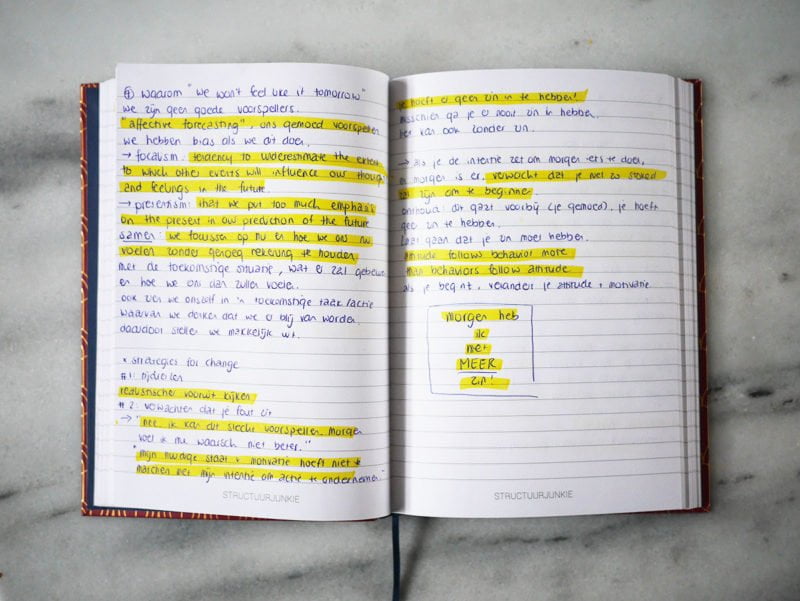 ④ waarom "we won't feel like it tomorrow"
we zijn geen goede voorspellers.
"affective forecasting", ons gemoed voorspellen
we hebben bias als we dit doen.
→ focalism: tendency to underestimate the extent
to which other events will influence our thoughts
and feelings in the future.
→ presentism: that we put too much emphasis
on the present in our prediction of the future
samen: we focussen op nu en hoe we ons nu
voelen zonder genoeg rekening te houden
met de toekomstige situatie, wat er zal gebeuren
en hoe we ons dan zullen voelen.
ook zien we onszelf in 'n toekomstige taak/actie
waarvan we denken dat we er blij van worden.
daardoor stellen we makkelijk uit.
* strategies for change
#1: tijdreizen
realistischer vooruit kijken
#2: verwachten dat je fout zit
→ "nee, ik kan dit slecht voorspellen. morgen
voel ik me waarsch. niet beter."
"mijn huidige staat + motivatie hoeft niet te
matchen met mijn intentie om actie te ondernemen."
STRUCTUURJUNKIE
je hoeft er geen zin in te hebben!
misschien ga je er nooit zin in hebben.
het kan ook zonder zin.
→ als je de intentie zet om morgen iets te doen,
en morgen is er, verwacht dat je niet zo
zal zijn om te beginnen
onthoud: dit gaat voorbij (je gemoed). je hoeft
geen zin te hebben.
gaan dat je zin moet hebben.
attitude follow behavior more
than behaviors follow attitude.
als je begint, verander je attitude + motivatie
morgen heb
ik
niet
MEER
zin!
STRUCTUURJUNKIE